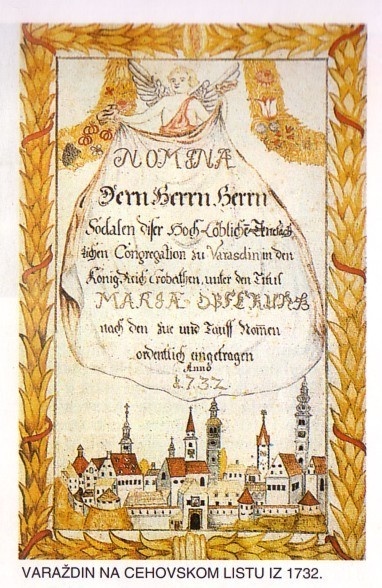 NOMINA
Dern Herrn Herrn
Sodalen diser Hoch-Löbliche
lichen Congregation zu Varasdin in den
König Reich Crobathen, unter den Titul
MARIÆ
nach den zue und Tauff Nomen
ordentlich eingetragen
Anno
1.7.3.2.
VARAŽDIN NA CEHOVSKOM LISTU IZ 1732.